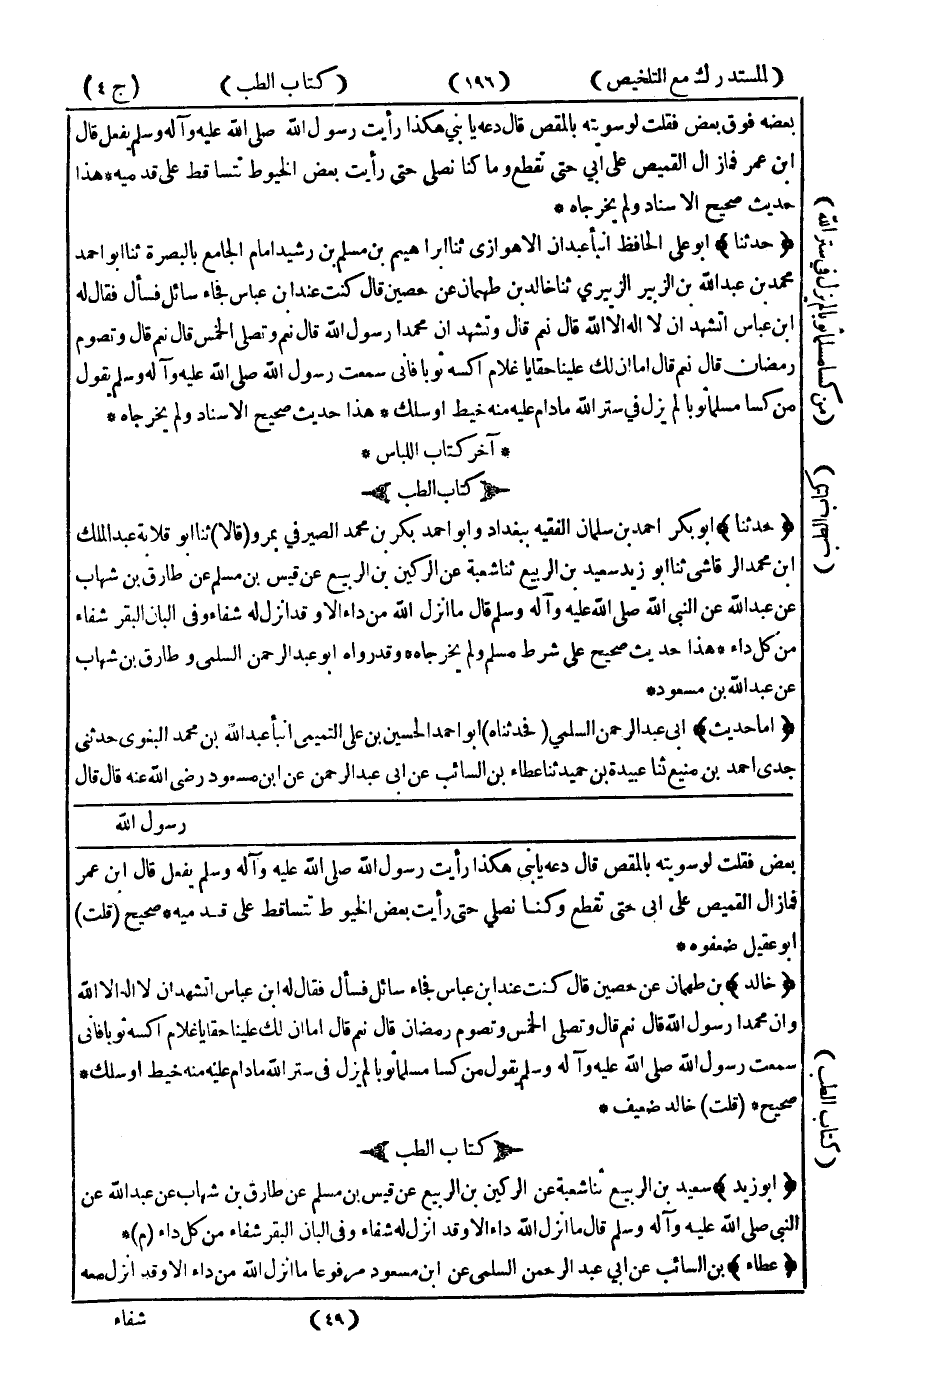 (المستدرك مع التلخيص) (١٩٦) (كتاب الطب) (ج ٤)
بعضه فوق بعض فقلت لو سويته بالمقص قال دعه يا بني هكذا رأيت رسول الله صلى الله عليه وآله وسلم يفعل قال
ابن عمر فما زال القميص على ابي حتى تقطع وما كنا نصلي حتى رأيت بعض الخيوط تتساقط على قدميه * هذا
حديث صحيح الاسناد ولم يخرجاه *
﴿ حدثنا ﴾ ابو على الحافظ انبأ عبدان الاهوازى ثنا ابراهيم بن مسلم بن رشيد امام الجامع بالبصرة ثنا ابو احمد
محمد بن عبد الله بن الزبير الزبيري ثنا خالد بن طهمان عن حصين قال كنت عند ابن عباس فجاء سائل فسأل فقال له
ابن عباس اتشهد ان لا اله الا الله قال نعم قال وتشهد ان محمدا رسول الله قال نعم وتصلى الخمس قال نعم قال وتصوم
رمضان قال نعم قال اما ان لك علينا حقا يا غلام اكسه ثوبا فانى سمعت رسول الله صلى الله عليه وآله وسلم يقول
من كسا مسلما ثوبا لم يزل في ستر الله ما دام عليه منه خيط او سلك * هذا حديث صحيح الاسناد ولم يخرجاه *
* آخر كتاب اللباس *
كتاب الطب
﴿ حدثنا ﴾ ابو بكر احمد بن سلمان الفقيه ببغداد وابو احمد بكر بن محمد الصيرفي بمرو (قالا) ثنا ابو قلابة عبد الملك
ابن محمد الرقاشى ثنا ابو زيد سعيد بن الربيع ثنا شعبة عن الركين بن الربيع عن قيس بن مسلم عن طارق بن شهاب
عن عبد الله عن النبي الله صلى الله عليه وآله وسلم قال ما انزل الله من داء الا وقد انزل له شفاء وفى البان البقر شفاء
من كل داء * هذا حديث صحيح على شرط مسلم ولم يخرجاه * وقد رواه ابو عبد الرحمن السلمى وطارق بن شهاب
عن عبد الله بن مسعود *
﴿ اما حديث ﴾ ابى عبد الرحمن السلمي (فحدثناه) ابو احمد الحسين بن على التميمى انبأ عبد الله بن محمد البغوى حدثنى
جدى احمد بن منيع ثنا عبيدة بن حميد ثنا عطاء بن السائب عن ابى عبد الرحمن عن ابن مسعود رضى الله عنه قال قال
رسول الله
بعض فقلت لو سويته بالمقص قال دعه يا بنى هكذا رأيت رسول الله صلى الله عليه وآله وسلم يفعل قال ابن عمر
فما زال القميص على ابى حتى تقطع وكنا نصلي حتى رأيت بعض الخيوط تتساقط على قدميه * صحيح (قلت)
ابو عقيل ضعفوه *
﴿ خالد ﴾ بن طهمان عن حصين قال كنت عند ابن عباس فجاء سائل فسأل فقال له ابن عباس اتشهد ان لا اله الا الله
وان محمدا رسول الله قال نعم قال وتصلى الخمس وتصوم رمضان قال نعم قال اما ان لك علينا حقا يا غلام اكسه ثوبا فانى
سمعت رسول الله صلى الله عليه وآله وسلم يقول من كسا مسلما ثوبا لم يزل فى ستر الله ما دام عليه منه خيط او سلك *
صحيح * (قلت) خالد ضعيف *
كتاب الطب
﴿ ابو زيد ﴾ سعيد بن الربيع ثنا شعبة عن الركين بن الربيع عن قيس بن مسلم عن طارق بن شهاب عن عبد الله عن
النبى صلى الله عليه وآله وسلم قال ما انزل الله داء الا وقد انزل له شفاء وفى البان البقر شفاء من كل داء (م) *
﴿ عطاء ﴾ بن السائب عن ابي عبد الرحمن السلمى عن ابن مسعود مرفوعا ما انزل الله من داء الا وقد انزل معه
(٤٩) شفاء
(من كسا مسلما ثوبا لم يزل في ستر الله)
(كتاب الطب)